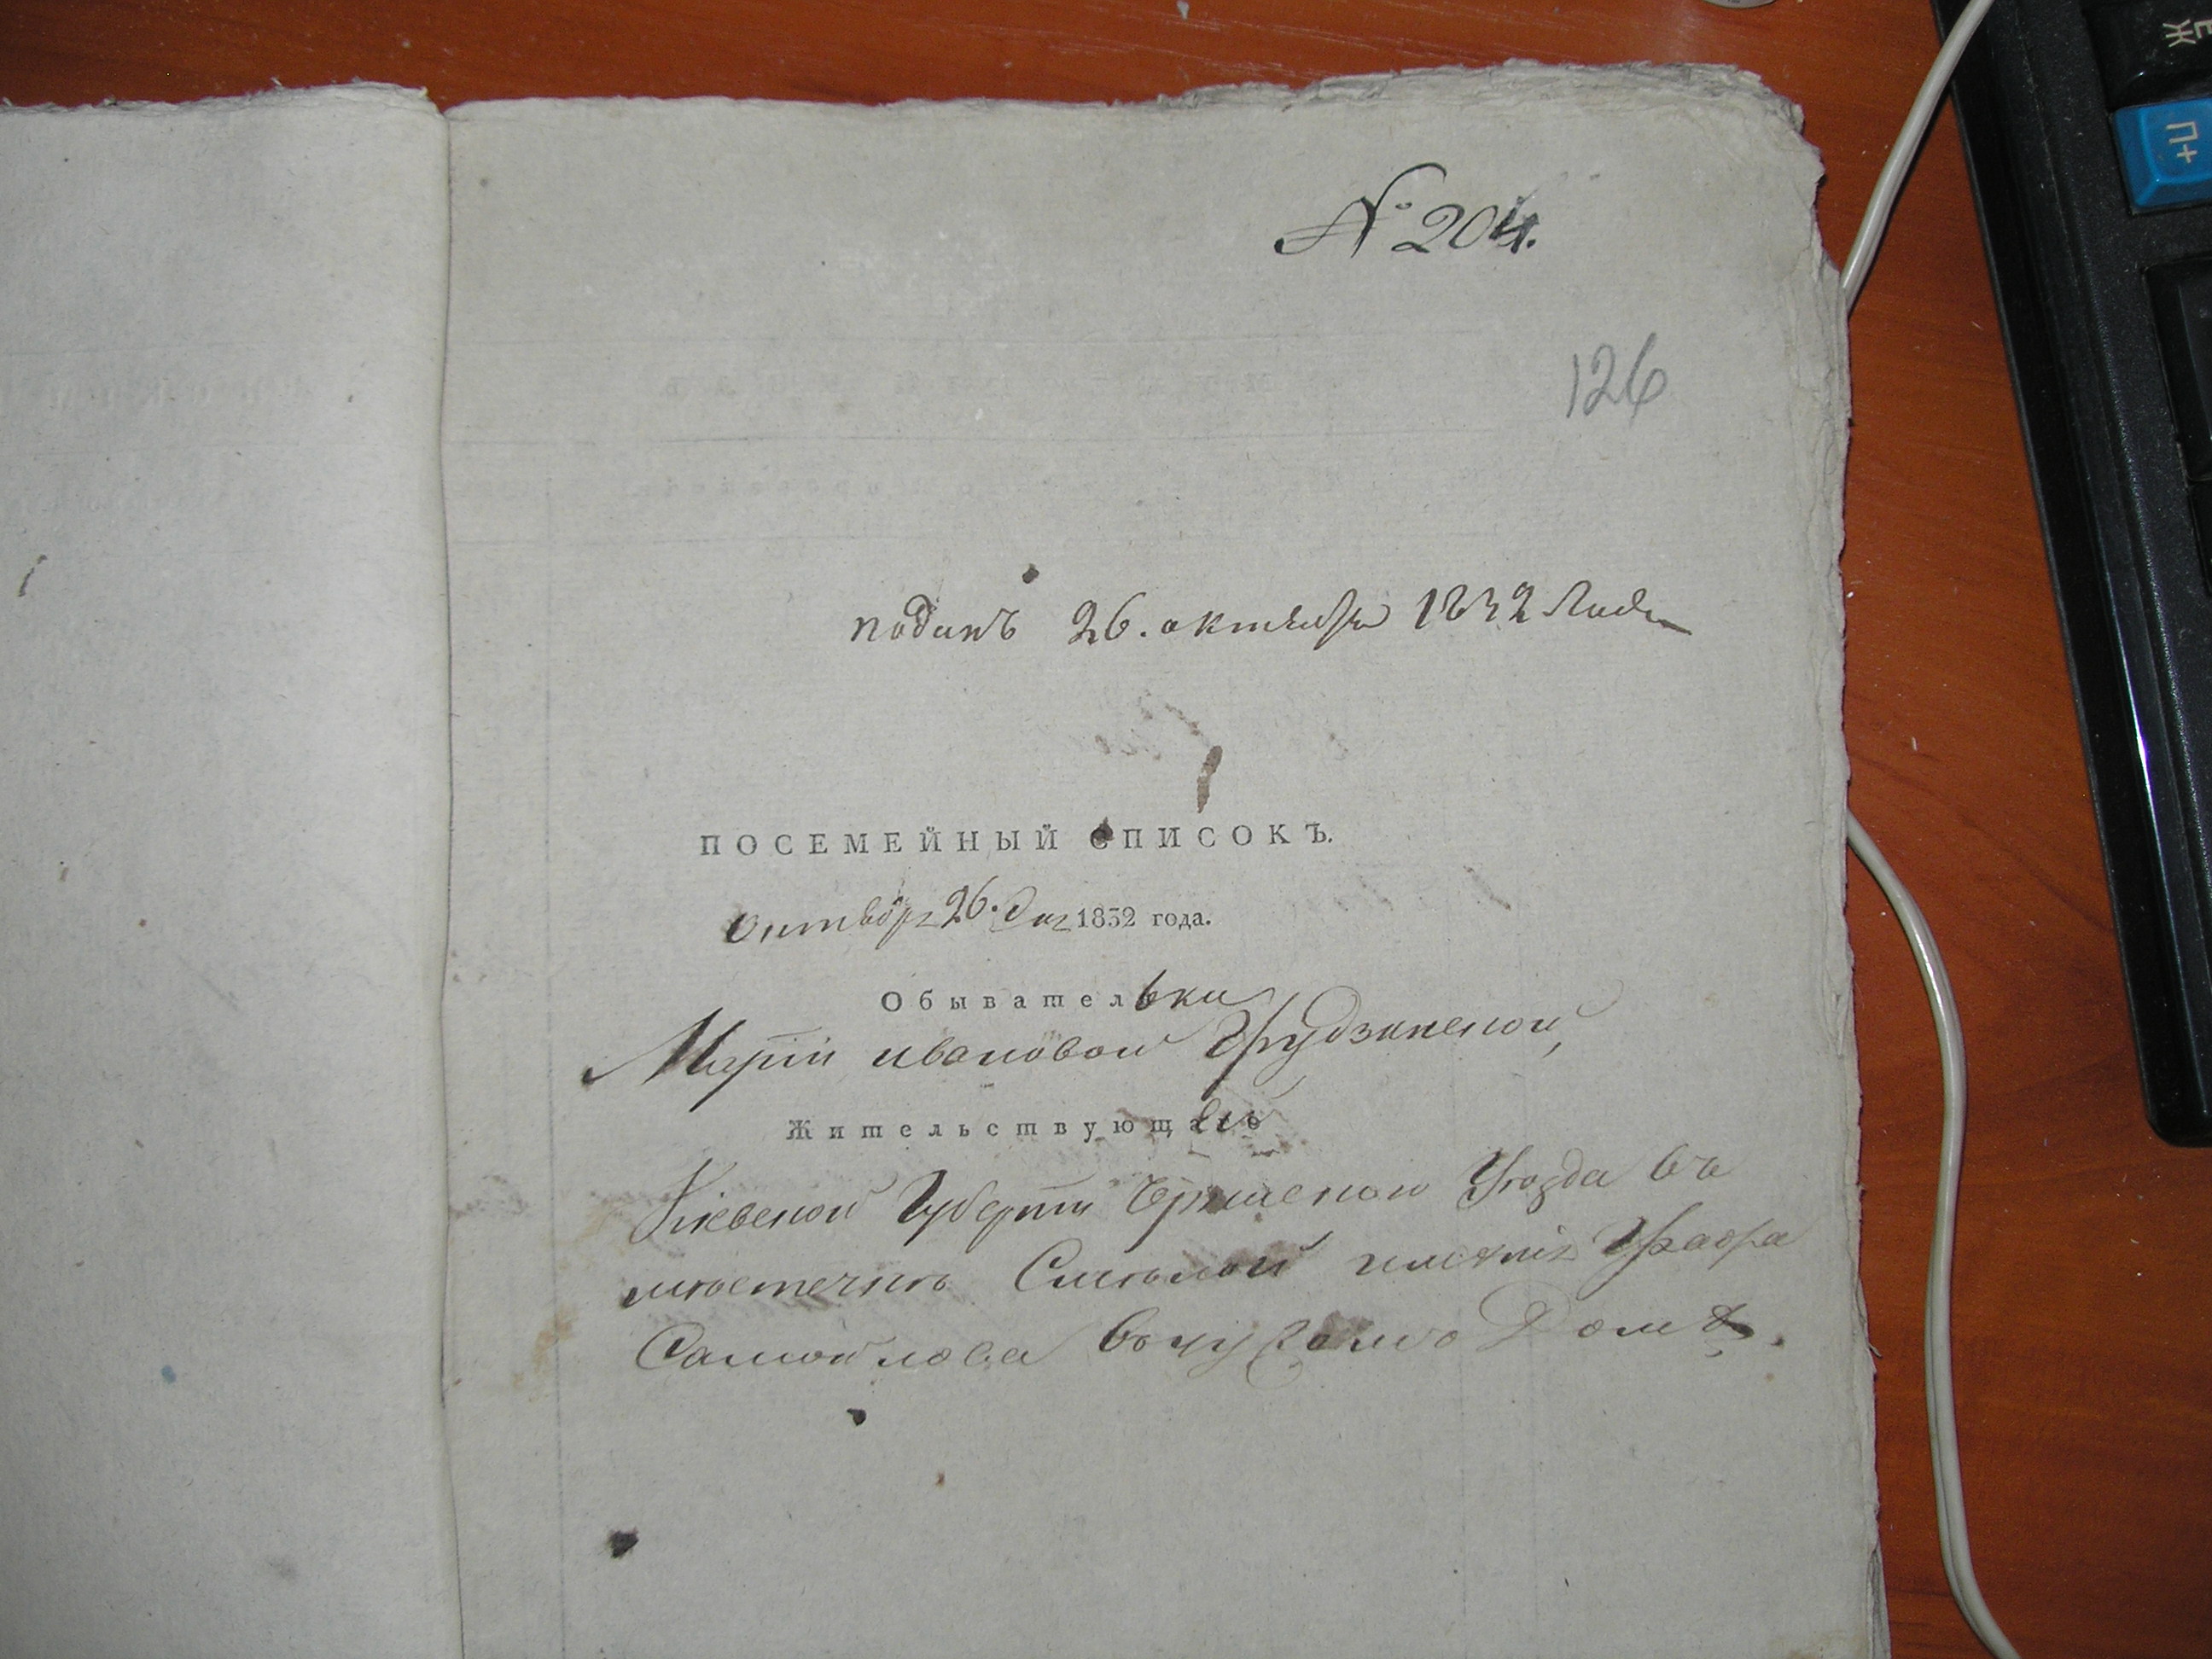 № 204.
126
поданъ 26. октября 1832 Года
ПОСЕМЕЙНЫЙ СПИСОКЪ.
Октября 26. дня 1832 года.
Обывательки
Маріи ивановой Грудзинской,
Жительствующей
Кіевской Губерніи Черкаской Уѣзда въ
мѣстечкѣ Смѣлой имѣнія Графа
Самойлова въ чужомъ Домѣ.
Ж
П+